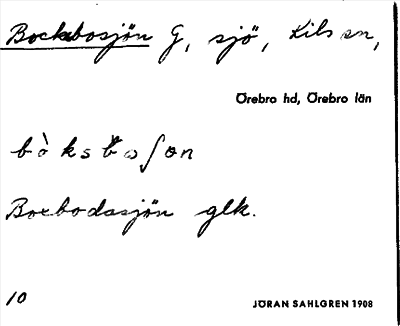 Bockbosjön G, sjö, Kils sn,
Örebro hd, Örebro län
bòksbωʃøn
Boxbodasjön glk.
10
JÖRAN SAHLGREN 1908